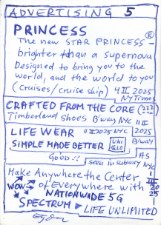 ADVERTISING 5
PRINCESS
The new STAR PRINCESS –
brighter than a supernova
Designed to bring you to the
world, and the world to you
(cruises/cruise ship) 4 II 2025
NYTimes
CRAFTED FROM THE CORE
Timberland Shoes B'way NYC
LIFE WEAR II 2025 NYC 2025
SIMPLE MADE BETTER UNI QLO B'way
Good!! AS
seen in subway NYC
Make Anywhere the Center
WOW of Everywhere with
NATIONWIDE 5G
SPECTRUM LIFE UNLIMITED